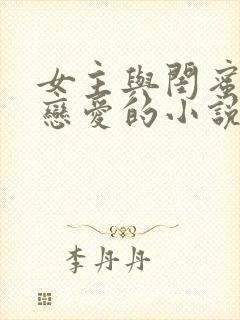 女主與閨蜜
戀愛的小說
李丹丹